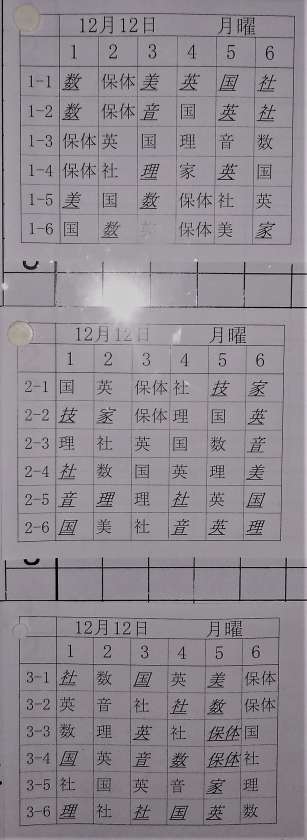 12月12日 月曜
1 2 3 4 5 6
1-1 数 保体 美 英 国 社
1-2 数 保体 音 国 英 社
1-3 保体 英 国 理 音 数
1-4 保体 社 理 家 英 国
1-5 美 国 数 保体 社 英
1-6 国 数 英 保体 美 家
12月12日 月曜
1 2 3 4 5 6
2-1 国 英 保体 社 技 家
2-2 技 家 保体 理 国 英
2-3 理 社 英 国 数 音
2-4 社 数 国 英 理 美
2-5 音 理 理 社 英 国
2-6 国 美 社 音 英 理
12月12日 月曜
1 2 3 4 5 6
3-1 社 数 国 英 美 保体
3-2 英 音 社 社 数 保体
3-3 数 理 英 社 保体 国
3-4 国 英 音 数 保体 社
3-5 社 国 英 音 家 理
3-6 理 社 社 国 英 数